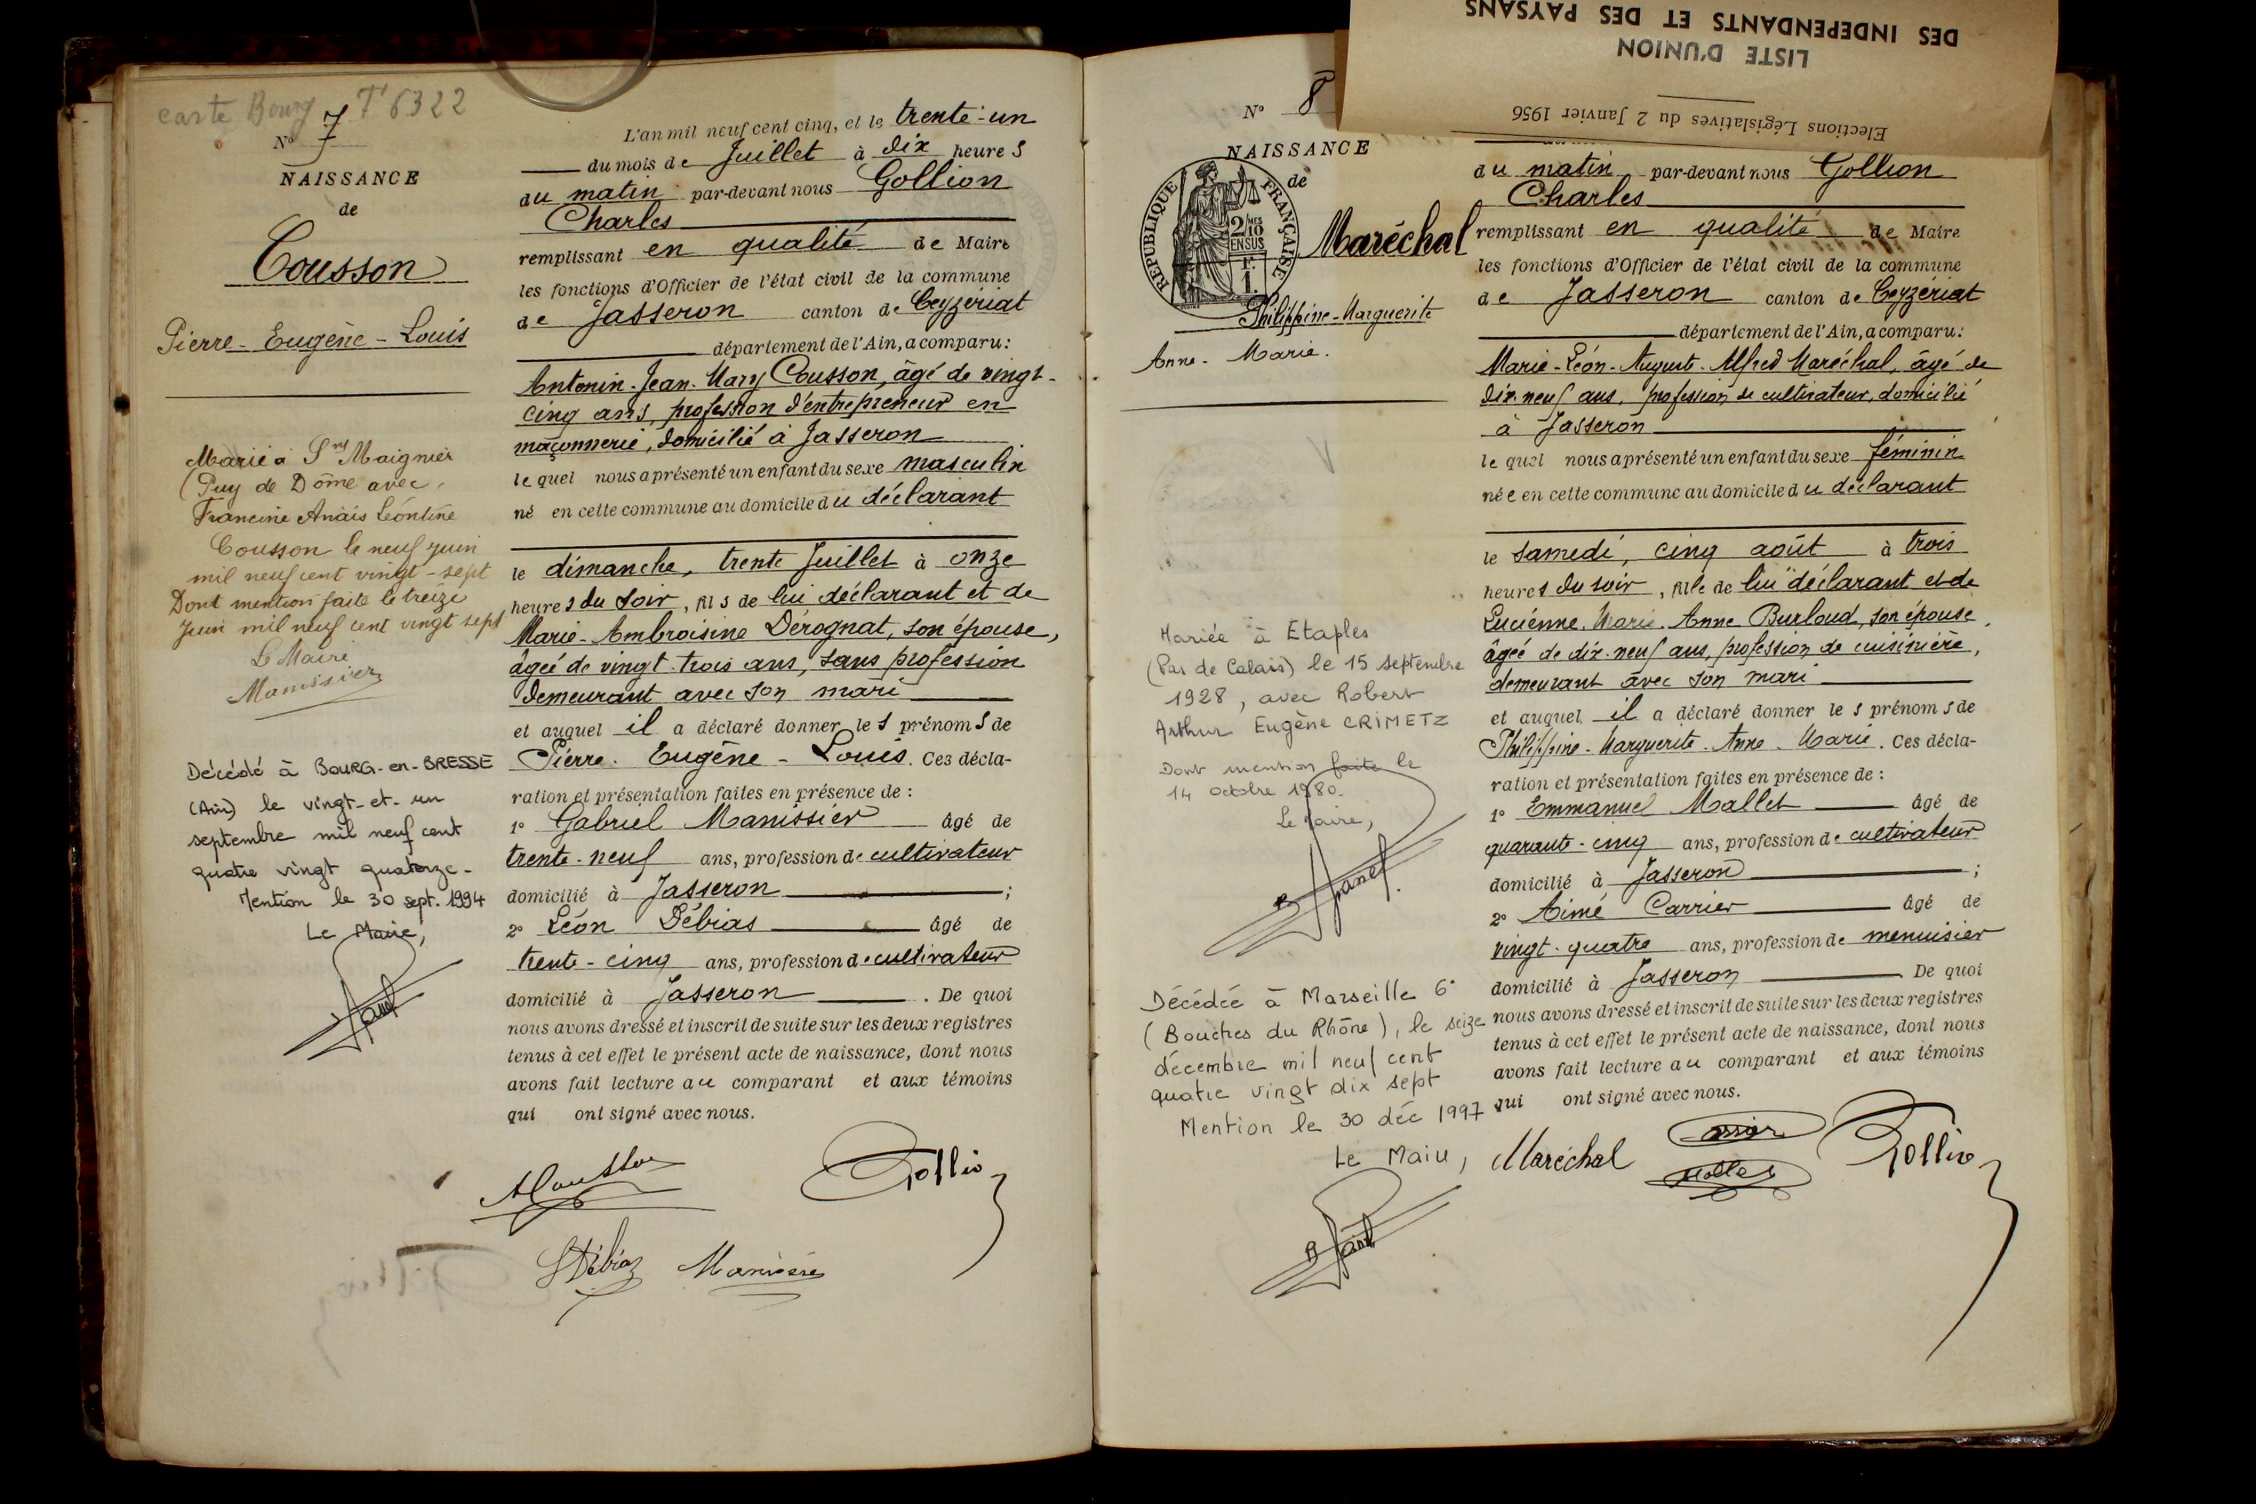 carte Bourg T 6322
N° 7
NAISSANCE
de
Cousson
Pierre - Eugène - Louis
Marié à St Maignier
(Puy de Dôme avec
Francine Anaïs Léontine
Cousson le neuf juin
mil neuf cent vingt-sept
Dont mention faite le treize
juin mil neuf cent vingt sept
Le Maire
Manissier
Décédé à BOURG-en-BRESSE
(Ain) le vingt-et-un
septembre mil neuf cent
quatre vingt quatorze-
Mention le 30 sept. 1994
Le Maire,
L'an mil neuf cent cinq, et le trente-un
du mois de Juillet à dix heures
du matin par-devant nous Gollion
Charles
remplissant en qualité de Maire
les fonctions d'Officier de l'état civil de la commune
de Jasseron canton de Ceyzériat
département de l'Ain, a comparu:
Antonin-Jean-Mary Cousson, âgé de vingt-
cinq ans, profession d'entrepreneur en
maçonnerie, domicilié à Jasseron
lequel nous a présenté un enfant du sexe masculin
né en cette commune au domicile du déclarant
le dimanche, trente Juillet à onze
heures du soir, fils de lui déclarant et de
Marie-Ambroisine Dérognat, son épouse,
âgée de vingt-trois ans, sans profession
demeurant avec son mari
et auquel il a déclaré donner les prénoms de
Pierre. Eugène - Louis. Ces décla-
ration et présentation faites en présence de :
1° Gabriel Manissier âgé de
trente-neuf ans, profession de cultivateur
domicilié à Jasseron ;
2° Léon Débias âgé de
trente-cinq ans, profession de cultivateur
domicilié à Jasseron . De quoi
nous avons dressé et inscrit de suite sur les deux registres
tenus à cet effet le présent acte de naissance, dont nous
avons fait lecture au comparant et aux témoins
qui ont signé avec nous.
ACousson
Gollion
LDébias Manissier
DES INDEPENDANTS ET DES PAYSANS
LISTE D'UNION
Elections Législatives du 2 Janvier 1956
N° 8
NAISSANCE
de
REPUBLIQUE FRANÇAISE
2/10 MES
EN SUS
1 F.
Maréchal
Philippine-Marguerite
Anne - Marie.
Mariée à Etaples
(Pas de Calais) le 15 septembre
1928, avec Robert
Arthur Eugène CRIMETZ
Dont mention faite le
14 octobre 1980.
Le Maire,
Décédée à Marseille 6°
(Bouches du Rhône), le seize
décembre mil neuf cent
quatre vingt dix sept
Mention le 30 déc 1997
Le Maire,
du matin par-devant nous Gollion
Charles
remplissant en qualité de Maire
les fonctions d'Officier de l'état civil de la commune
de Jasseron canton de Ceyzériat
département de l'Ain, a comparu:
Marie-Léon-Auguste-Alfred Maréchal, âgé de
dix-neuf ans, profession de cultivateur, domicilié
à Jasseron
lequel nous a présenté un enfant du sexe féminin
née en cette commune au domicile du déclarant
le samedi, cinq août à trois
heures du soir, fille de lui déclarant et de
Lucienne. Marie. Anne Burloud, son épouse
âgée de dix-neuf ans, profession de cuisinière,
demeurant avec son mari
et auquel il a déclaré donner les prénoms de
Philippine-Marguerite-Anne-Marie. Ces décla-
ration et présentation faites en présence de :
1° Emmanuel Mallet âgé de
quarante-cinq ans, profession de cultivateur
domicilié à Jasseron ;
2° Aimé Carrier âgé de
vingt-quatre ans, profession de menuisier
domicilié à Jasseron . De quoi
nous avons dressé et inscrit de suite sur les deux registres
tenus à cet effet le présent acte de naissance, dont nous
avons fait lecture au comparant et aux témoins
qui ont signé avec nous.
Maréchal Carrier Gollion
Mallet